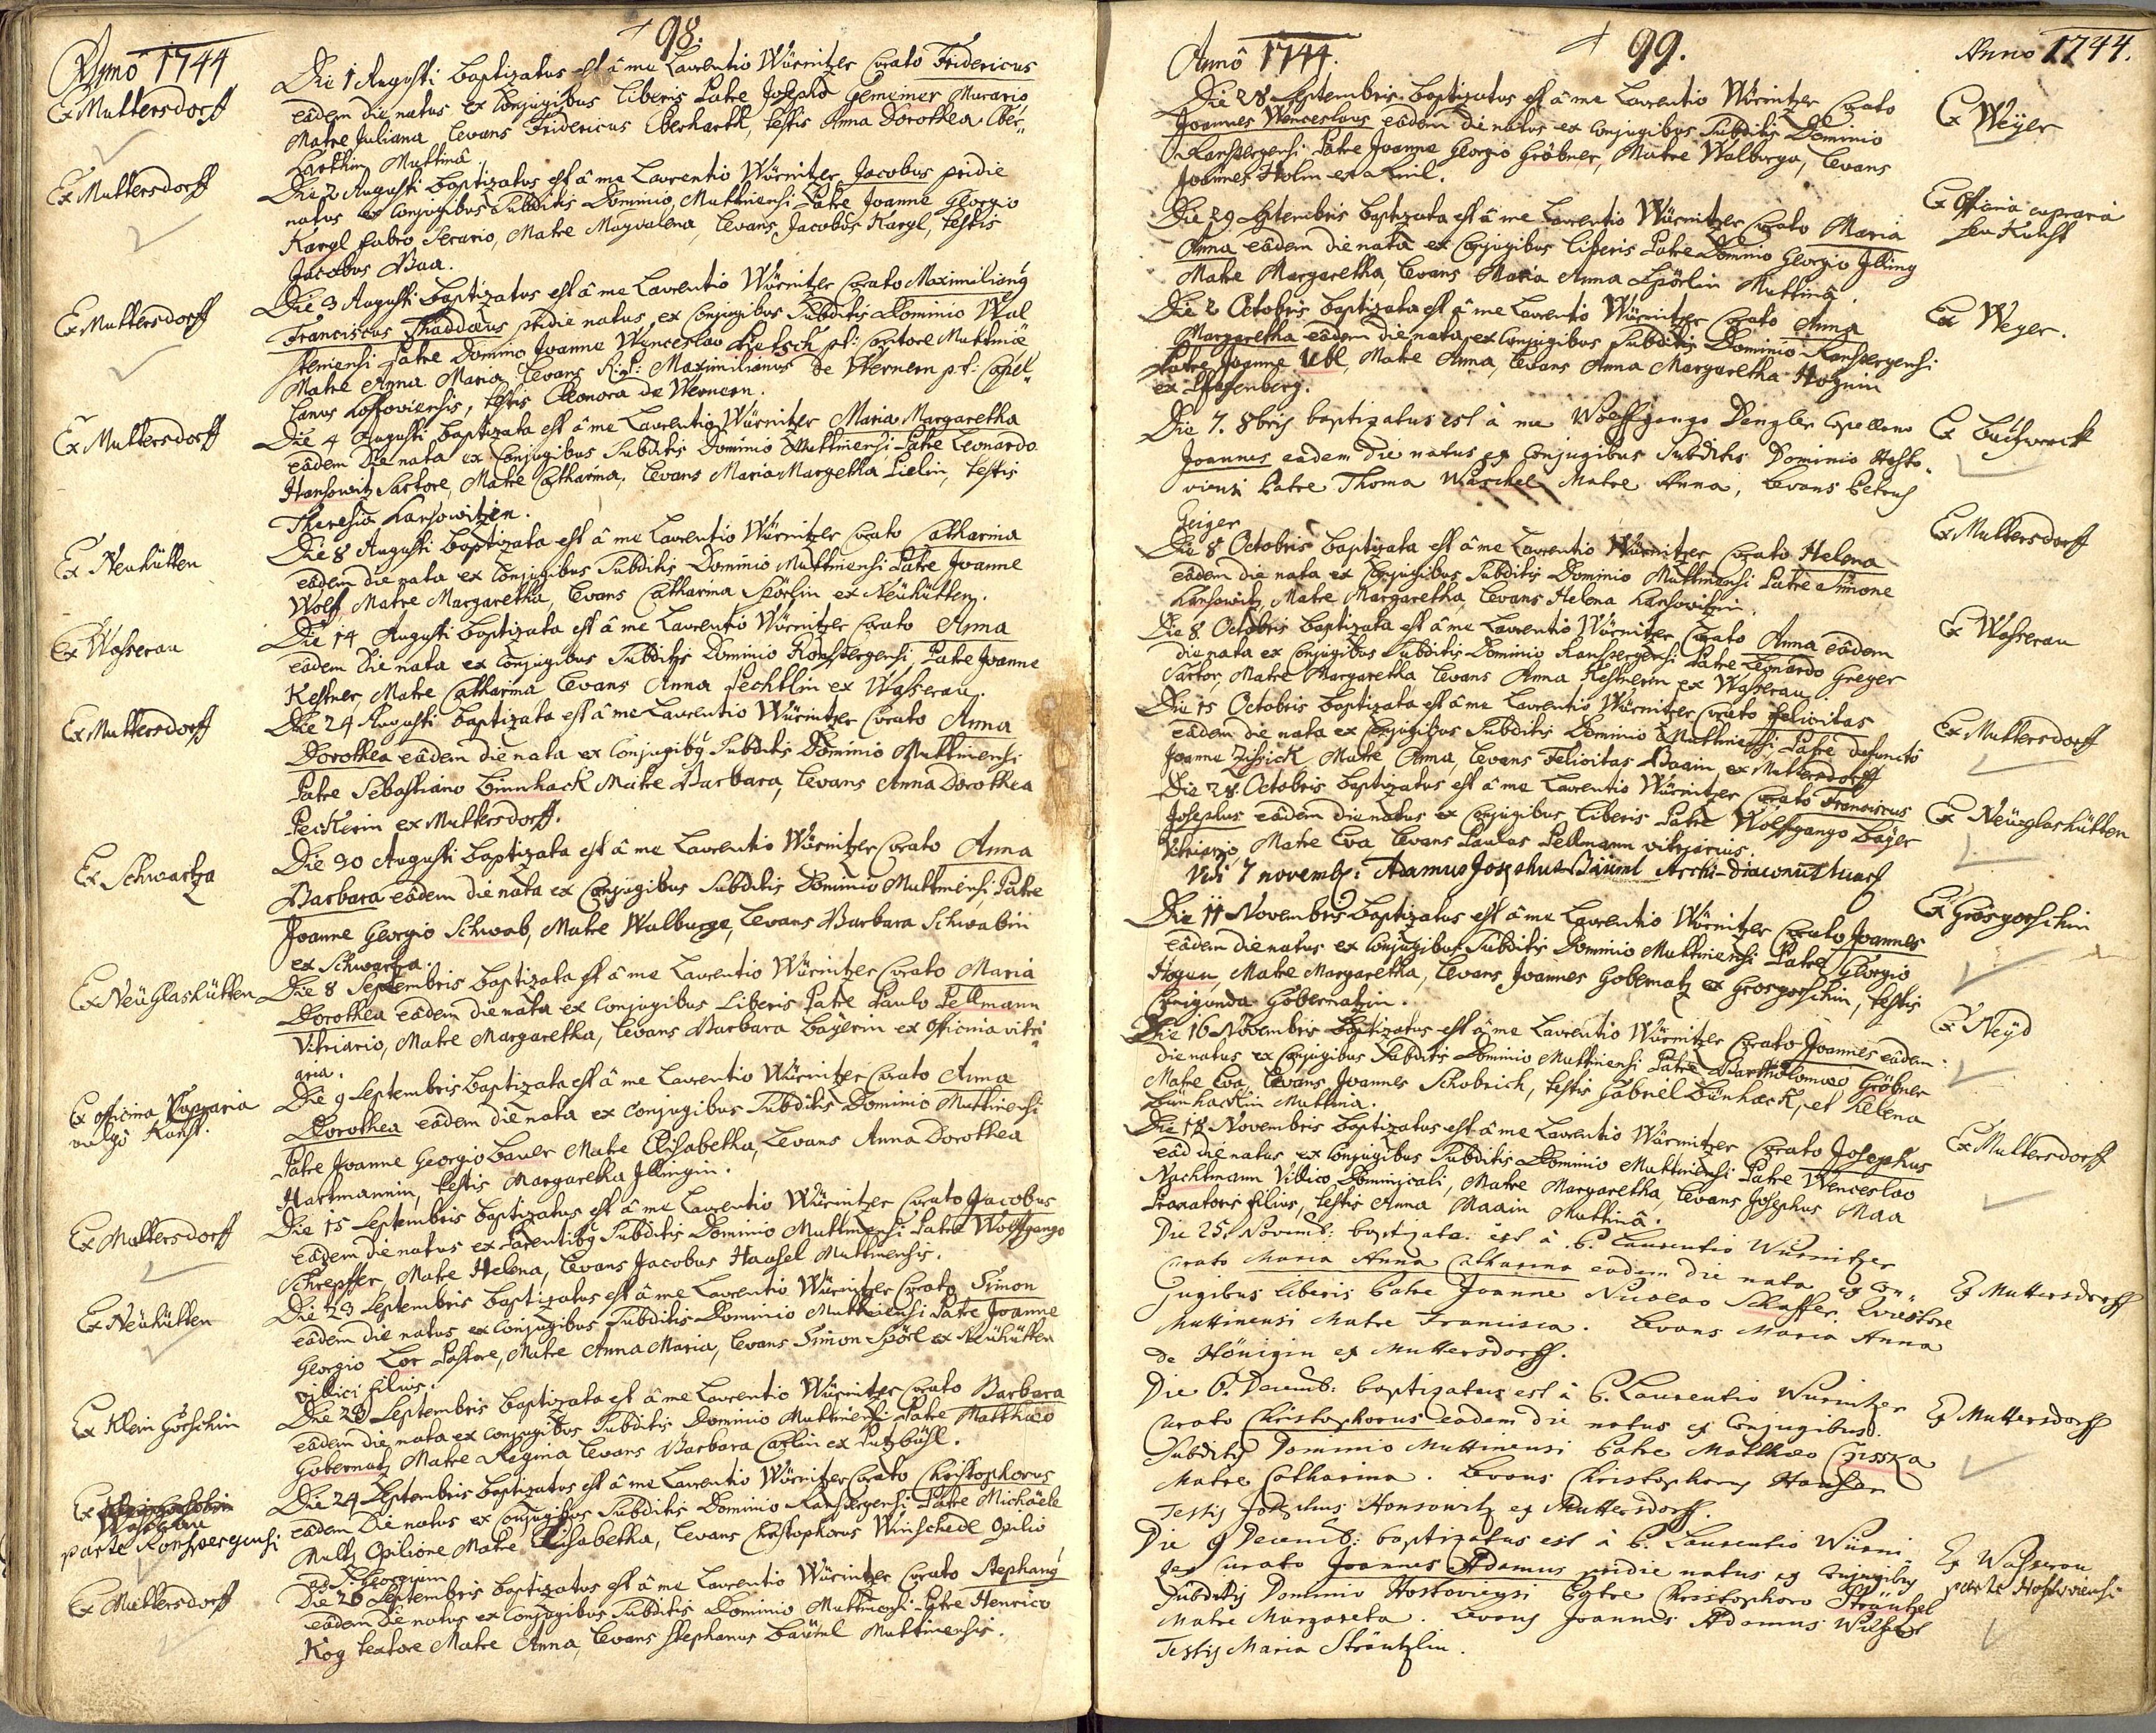 98.
Anno 1744
Ex Muttersdorff
Die 1 Augusti baptizatus est â me Laurentio Würnitzer Curato Fridericus
eâdem die natus ex Conjugibus liberis Patre Josepho Gemeiner Murario,
Matre Juliana, levans Fridericus Eberharth, testis Anna Dorothea Eber-
harthin Muttinâ.
Ex Muttersdorff
Die 2 Augusti baptizatus est â me Laurentio Würnitzer Jacobus pridie
natus ex Conjugibus Subditis Dominio Muttinensi Patre Joanne Georgio
Kargl fabro Serario, Matre Magdalena, levans Jacobus Kargl, testis
Jacobus Baa.
Ex Muttersdorff
Die 3 Augusti baptizatus est â me Laurentio Würnitzer Curato Maximilianus
Franciscus Thaddæus pridie natus ex Conjugibus Subditis Dominio Wal
steniensi Patre Domino Joanne Wenceslao Pietsch pt: Cantore Muttinæ
Matre Anna Maria, levans Maximilianus de Wernern pt: Capel-
lanus Hostoviensis, testis Eleonora de Wernern.
Ex Muttersdorff
Die 4 Augusti baptizata est â me Laurentio Würnitzer Maria Margaretha
eâdem die nata ex Conjugibus Subditis Dominio Muttinensi Patre Leonardo
Hansowitz Sartore, Matre Catharina, levans Maria Margetha Pielin, testis
Theresia Hansowitzin.
Ex Neuhütten
Die 8 Augusti baptizata est â me Laurentio Würnitzer Curato Catharina
eâdem die nata ex Conjugibus Subditis Dominio Muttinensi Patre Joanne
Wolff Matre Margaretha, levans Catharina Spörlin ex Neühütten.
Ex Wasserau
Die 14 Augusti baptizata est â me Laurentio Würnitzer Curato Anna
eâdem die nata ex Conjugibus Subditis Dominio Ronspergensi, Patre Joanne
Kestner, Matre Catharina levans Anna Pechtlin ex Wasserau.
Ex Muttersdorff
Die 24 Augusti baptizata est â me Laurentio Würnitzer Curato Anna
Dorothea eâdem die nata ex Conjugibus Subditis Dominio Muttinensi
Patre Sebastiano Binnhack Matre Barbara, levans Anna Dorothea
Peckerin ex Muttersdorff.
Ex Schwartza
Die 30 Augusti baptizata est â me Laurentio Würnitzer Curato Anna
Barbara eâdem die nata ex Conjugibus Subditis Dominio Muttinensi, Patre
Joanne Georgio Schwab, Matre Walburga, levans Barbara Schwabin
ex Schwartza.
Ex Neüglashütten
Die 8 Septembris baptizata est â me Laurentio Würnitzer Curato Maria
Dorothea eâdem die nata ex Conjugibus Liberis Patre Paulo Pellmann
Vitriario, Matre Margaretha, levans Barbara Bayerin ex officina vitri-
aria.
Ex officina Cupraria
vulgò Kunst.
Die 9 Septembris baptizata est â me Laurentio Würnitzer Curato Anna
Dorothea eâdem die nata ex Conjugibus Subditis Dominio Muttinensi
Patre Joanne Georgio Bauer Matre Elisabetha, Levans Anna Dorothea
Hartmannin, testis Margaretha Illingin.
Ex Muttersdorff
Die 15 Septembris baptizatus est â me Laurentio Würnitzer Curato Jacobus
eâdem die natus ex Parentibus Subditis Dominio Muttinensi Patre Wolffgango
Schrepffer, Matre Helena, levans Jacobus Haasel Muttinensis.
Ex Neühütten
Die 23 Septembris baptizatus est â me Laurentio Würnitzer Curato Simon
eâdem die natus ex Conjugibus Subditis Dominio Muttinensi Patre Joanne
Georgio Lor Pastore, Matre Anna Maria, levans Simon Spörl ex Neühütten
villici filius.
Ex Klein Gorschin
Die 23 Septembris baptizata est â me Laurentio Würnitzer Curato Barbara
eâdem die nata ex Conjugibus Subditis Dominio Muttinensi Patre Matthæo
Gobernatz Matre Regina levans Barbara Carlin ex Putzbühl.
Ex Wasserau
parte Ronspergensi
Die 24 Septembris baptizatus est â me Laurentio Würnitzer Curato Christophorus
eâdem die natus ex Conjugibus Subditis Dominio Ronspergensi Patre Michäele
Multz Opilione Matre Elisabetha, levans Christophorus Winschedl Opilio
ad S. Georgium
Ex Muttersdorff
Die 26 Septembris baptizatus est â me Laurentio Würnitzer Curato Stephanus
eâdem die natus ex Conjugibus Subditis Dominio Muttinensi Patre Henrico
Kog textore Matre Anna, levans Stephanus Bäuml Muttinensis.
99.
Annô 1744.
Anno 1744.
Die 28 Septembris baptizatus est â me Laurentio Würnitzer Curato
Joannes Wenceslaus eâdem die natus ex Conjugibus Subditis Dominio
Ronspergensi Patre Joanne Georgio Gröbner, Matre Walburga, levans
Joannes Holm ex
Ex Weÿer
Die 29 Septembris baptizata est â me Laurentio Würnitzer Curato Maria
Anna eâdem die nata ex Conjugibus liberis Patre Domino Georgio Illing
Matre Margaretha, levans Maria Anna Spörlin Muttinâ.
Ex Officina cupraria
seu Kunst
Die 2 Octobris baptizata est â me Laurentio Würnitzer Curato Anna
Margaretha eâdem die nata ex Conjugibus Subditis Dominio Ronspergensi
Patre Joanne Ubl, Matre Anna, levans Anna Margaretha Hognin
ex Pfaffenberg.
Ex Weyer.
Die 7. 8bris baptizatus est à me Wolffgango Dengler Capellano
Joannes eadem die natus ex Conjugibus Subditis Dominio Hosto-
viensi Patre Thoma Waschek Matre Anna, Levans Petrus
Geiger
Die 8 Octobris baptizata est â me Laurentio Würnitzer Curato Helena
eâdem die nata ex Conjugibus Subditis Dominio Muttinensi Patre Simone
Hansowitz Matre Margaretha, levans Helena Hansowitzin.
Ex Muttersdorff
Die 8 Octobris baptizata est â me Laurentio Würnitzer Curato Anna eâdem
die nata ex Conjugibus Subditis Dominio Ronspergensi Patre Leonardo Greger
Sartor, Matre Margaretha levans Anna Kestnerin ex Wasserau.
Ex Wasserau
Die 15 Octobris baptizata est â me Laurentio Würnitzer Curato Felicitas
eâdem die nata ex Conjugibus Subditis Dominio Muttinensi Patre defuncto
Joanne Zischick Matre Anna, levans Felicitas Baain ex Muttersdorff
Ex Muttersdorff
Die 28 Octobris baptizatus est â me Laurentio Würnitzer Curato Franciscus
Josephus eâdem die natus ex Conjugibus liberis Patre Wolffgango Bayer
Vitriario, Matre Eva levans Paulus Pellmann vitriarius.
Ex Neüglashütten
Vidi 7 novemb: Adamus Josephus Bäuml Archi-Diaconus
Die 11 Novembris baptizatus est â me Laurentio Würnitzer Curato Joannes
eâdem die natus ex Conjugibus Subditis Dominio Muttinensi Patre Georgio
Hogen, Matre Margaretha, levans Joannes Gobernatz ex Grosgorschin, testis
Cunigunda Gobernatzin.
Ex Grosgorschin
Die 16 Novembris baptizatus est â me Laurentio Würnitzer Curato Joannes eâdem
die natus ex Conjugibus Subditis Dominio Muttinensi Patre Bartholomæo Gröbner
Matre Eva, levans Joannes Schobrich, testis Gabriel Bünhack, et Helena
Bünhackin Muttina.
Ex Neÿd
Die 18 Novembris baptizatus est â me Laurentio Würnitzer Curato Josephus
eâd die natus ex Conjugibus Subditis Dominio Muttinensi Patre Wenceslao
Nachtmann Villico Dominicali, Matre Margaretha, levans Josephus Maa
Braxatoris filius, testis Anna Maain Muttinâ.
Ex Muttersdorff
Die 25. Novemb: baptizata est à P. Laurentio Wurnitzer
Curato Maria Anna Catharina eadem die nata ex Con-
jugibus liberis Patre Joanne Nicolao Schaffer Quæstore
Muttinensi Matre Francisca. Levans Maria Anna
de Hönigin ex Muttersdorff.
Ex Muttersdorff
Die 6. Decemb: baptizatus est à P. Laurentio Wurnitzer
Curato Christophorus eadem die natus ex Conjugibus
Subditis Dominio Muttinensi Patre Matthæo Czisska
Matre Catharina. Levans Christophorus Hauser
Testis Josephus Honsowitz ex Muttersdorff.
Ex Muttersdorff
Die 9 Decemb: baptizatus est à P. Laurentio Würni-
zer Curato Joannes Adamus pridie natus ex Conjugibus
Subditis Dominio Hostoviensi Patre Christophoro Sträntzel
Matre Margareta. Levans Joannes Adamus
Testis Maria Sträntzlin.
Ex Wasserau
parte Hostoviensi